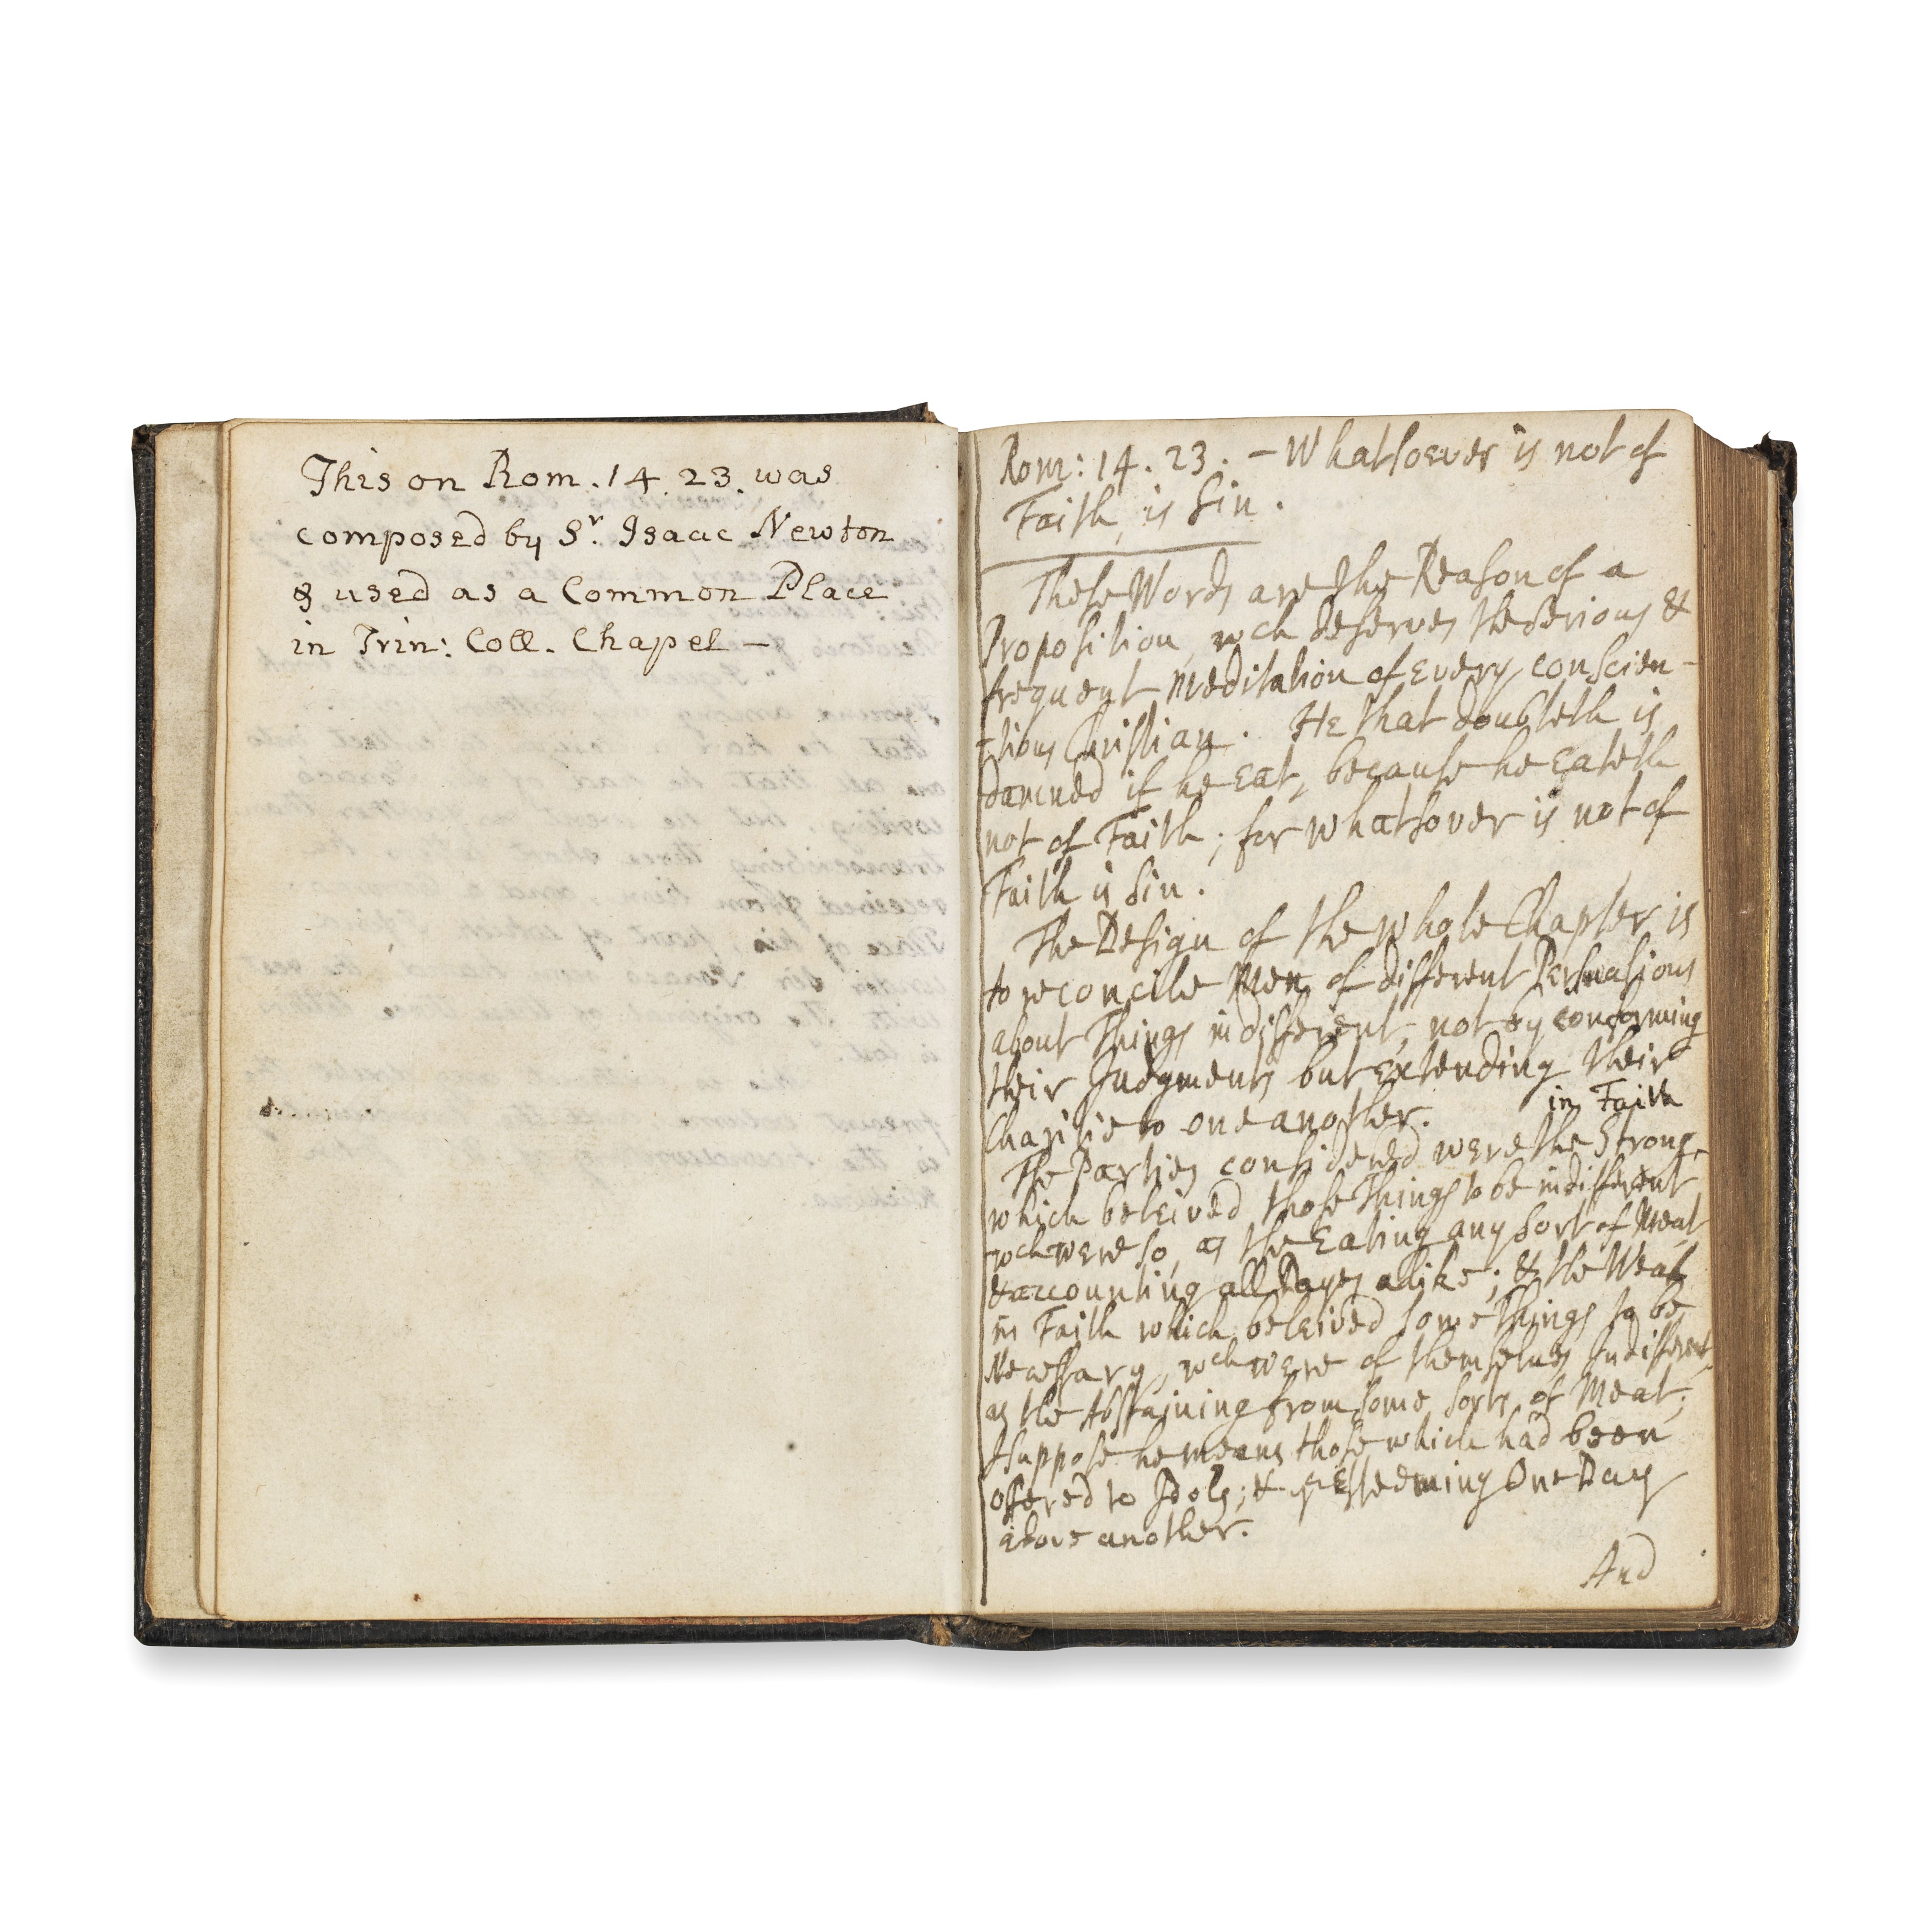 This on Rom. 14. 23. was
composed by Sr. Isaac Newton
& used as a Common Place
in Trin: Coll. Chapel —
Rom: 14. 23. – Whatsoever is not of
Faith, is Sin.
These Words are the Reason of a
Proposition, wch deserves the Serious &
frequent Meditation of Every conscien-
-tious Christian. He that doubteth is
damned if he Eat, because he Eateth
not of Faith; for whatsover is not of
Faith is Sin.
The Design of the whole Chapter is
to reconcile Men of different Persuasions
about Things indifferent, not by conforming
their Judgments but Extending their
Charitie to one another.
in Faith
The Parties considered were the Strong,
which beleived those Things to be indifferent
wch were so, as the Eating any Sort of Meat
& accounting all Dayes alike; & the Weak
in Faith which beleived some Things to be
Necessary, wch were of themselves Indifferent,
as the Abstaining from some Sorts of Meat;
I suppose he means those which had been
offered to Idols; & Esteeming One Day
above another.
And